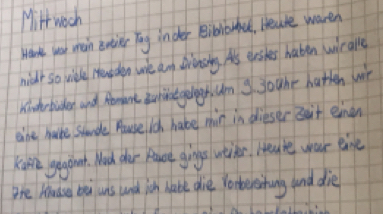 Mittwoch
Heute war mein zweiter Tag in der Bibliothek. Heute waren
nicht so viele Menschen wie am Dienstag. Als erstes haben wir alle
Kinderbücher und Romane zurückgelegt. Um 9.30 Uhr hatten wir
eine halbe Stunde Pause. Ich habe mir in dieser Zeit einen
Kaffe gegönnt. Nach der Pause gings weiter. Heute war eine
7te Klasse bei uns und ich habe die Vorbereitung und die